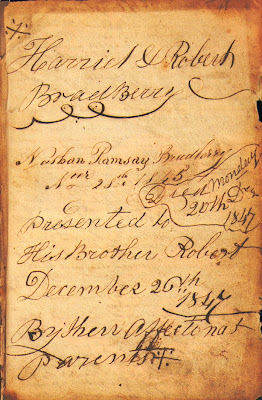 Harriel & Robert
BradBerry
Nathan Ramsay Bradberry
Novr 28th 1845
Died Monday
20th Dec
1847
Presented to
His Brother Robert
December 26th
1847
By Their Affectonat
Parents